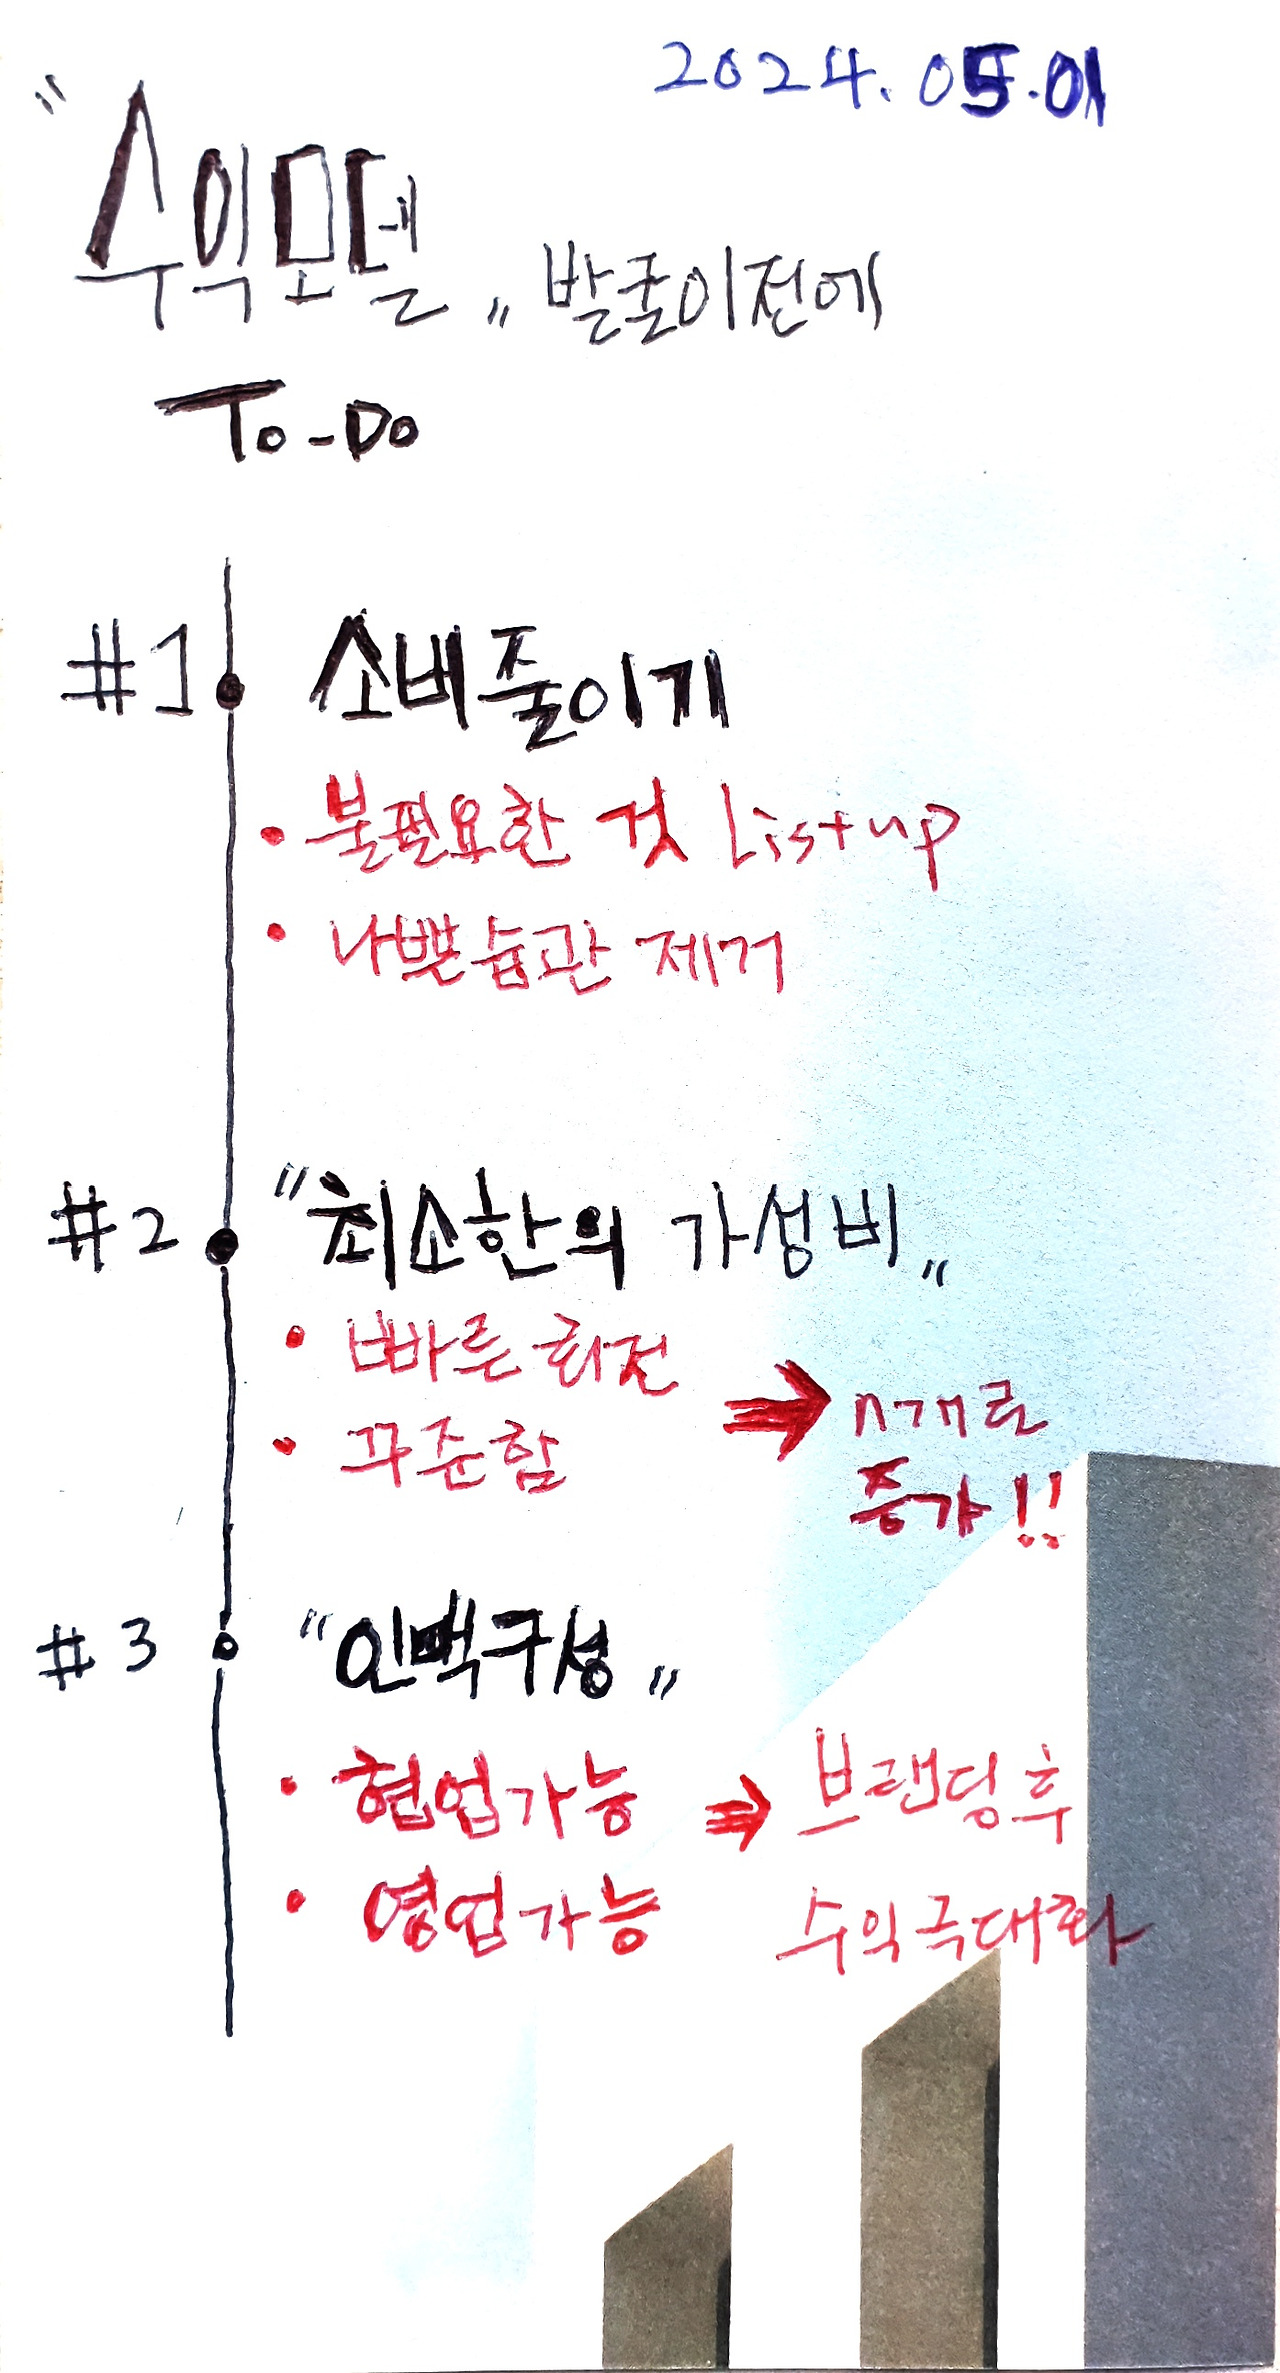 2024.05.01
"수익모델" 발굴이전에
To-Do
#1 소비줄이기
• 불필요한 것 List up
• 나쁜습관 제거
#2 "최소한의 가성비"
• 빠른회전
• 꾸준함
⇒ n개로
증가!!
#3 "인맥구성"
• 협업가능 ⇒ 브랜딩후
• 영업가능 수익극대화